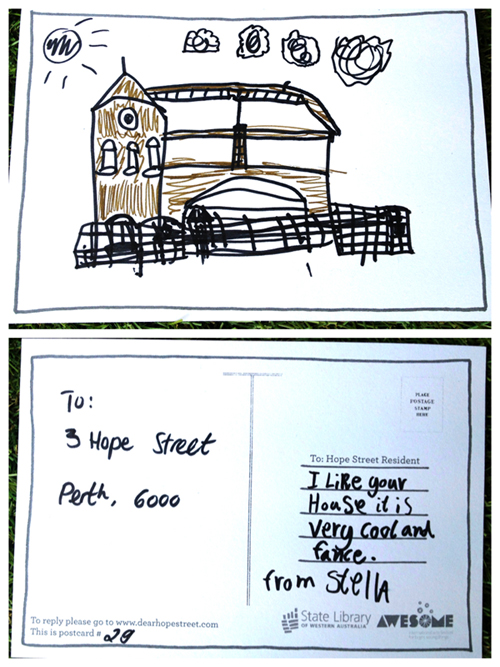 To:
3 Hope Street
Perth, 6000
To reply please go to www.dearhopestreet.com
This is postcard # 29
PLACE
POSTAGE
STAMP
HERE
To: Hope Street Resident
I Like your
House it is
very cool and
fance.
from Stella
State Library
OF WESTERN AUSTRALIA
AWESOME